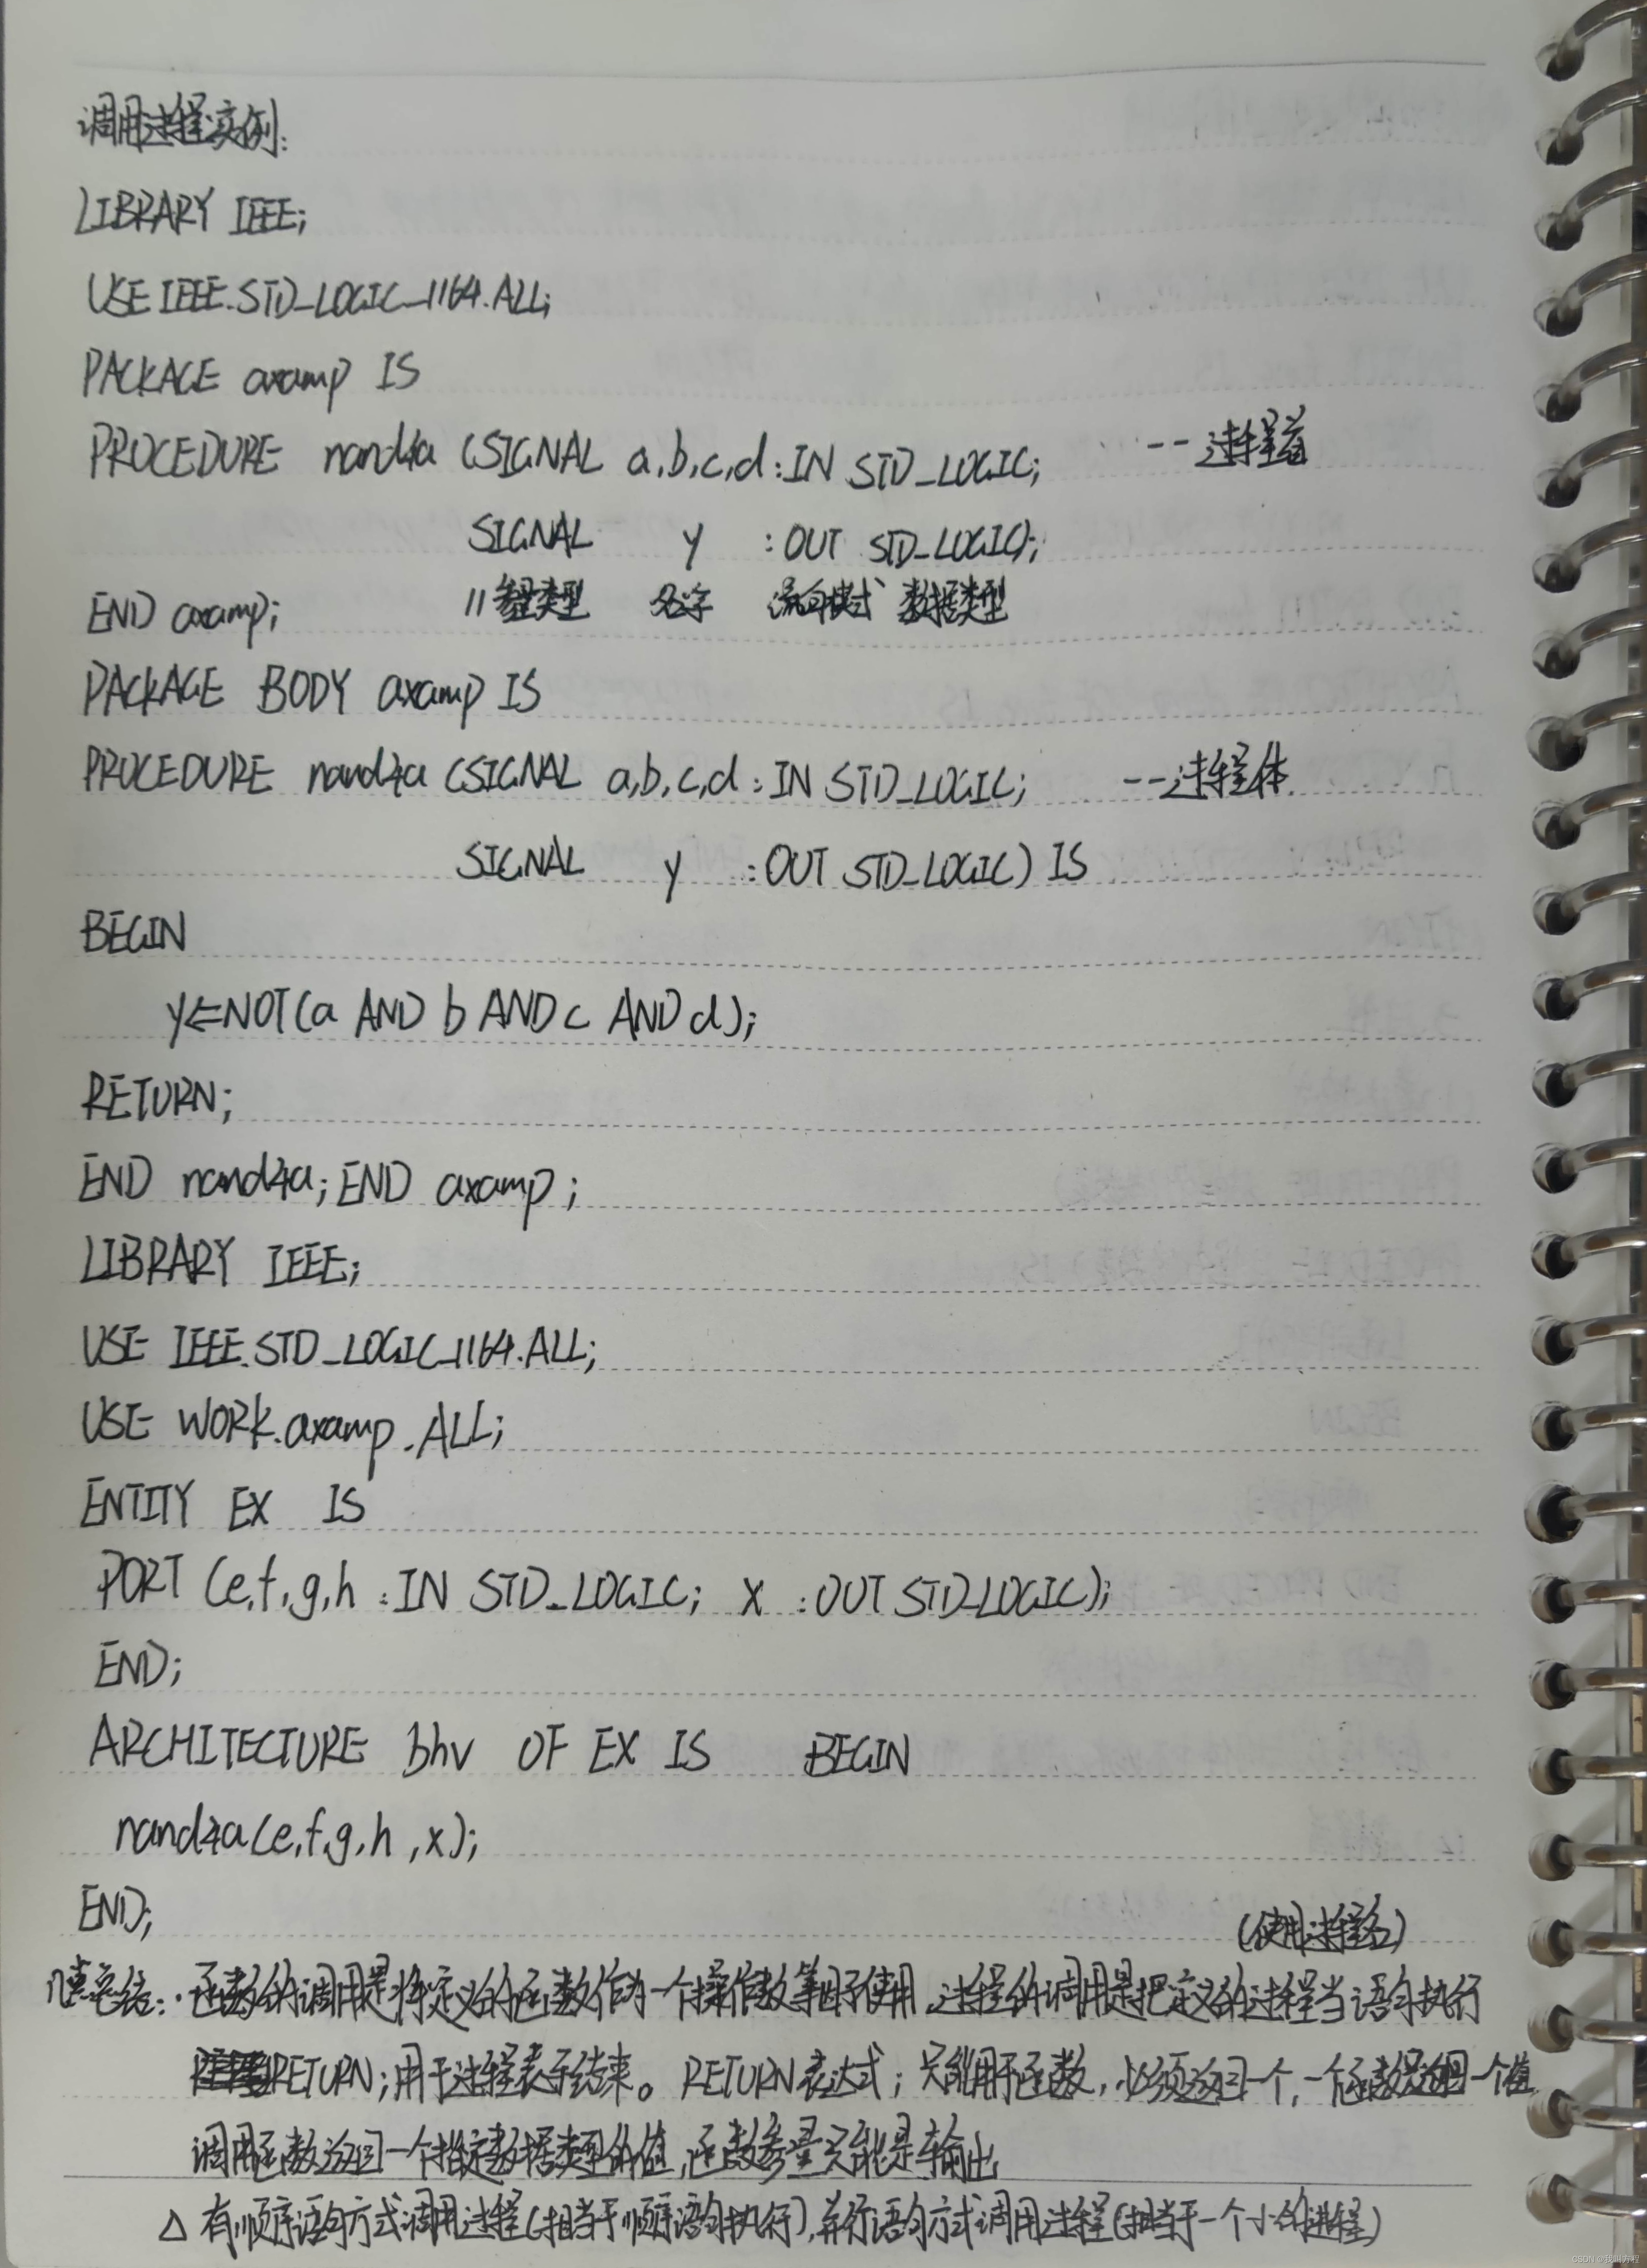 调用过程实例:
LIBRARY IEEE;
USE IEEE.STD_LOGIC_1164.ALL;
PACKAGE axamp IS
PROCEDURE nand4a (SIGNAL a,b,c,d:IN STD_LOGIC; --过程首
SIGNAL y :OUT STD_LOGIC);
END axamp; //参量类型 名字 流向模式 数据类型
PACKAGE BODY axamp IS
PROCEDURE nand4a (SIGNAL a,b,c,d:IN STD_LOGIC; --过程体
SIGNAL y :OUT STD_LOGIC) IS
BEGIN
y<=NOT(a AND b AND c AND d);
RETURN;
END nand4a; END axamp;
LIBRARY IEEE;
USE IEEE.STD_LOGIC_1164.ALL;
USE WORK.axamp.ALL;
ENTITY EX IS
PORT (e,f,g,h :IN STD_LOGIC; x :OUT STD_LOGIC);
END;
ARCHITECTURE bhv OF EX IS BEGIN
nand4a(e,f,g,h,x);
END;
(使用过程名)
总结:·函数的调用是将定义的函数作为一个操作数等因子使用,过程的调用是把定义的过程当语句执行
RETURN;用于过程表示结束。RETURN表达式;只能用于函数,必须返回一个,一个函数只返回一个值
调用函数返回一个指定数据类型的值,函数参量只能是输出
△ 有顺序语句方式调用过程(相当于顺序语句执行),并行语句方式调用过程(相当于一个小的进程)
CSDN